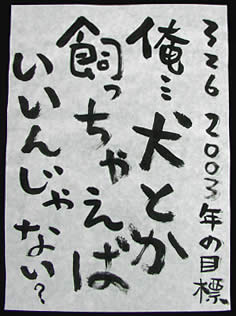 326 2003年の目標
俺…犬とか
飼っちゃえば
いいんじゃ
ない?